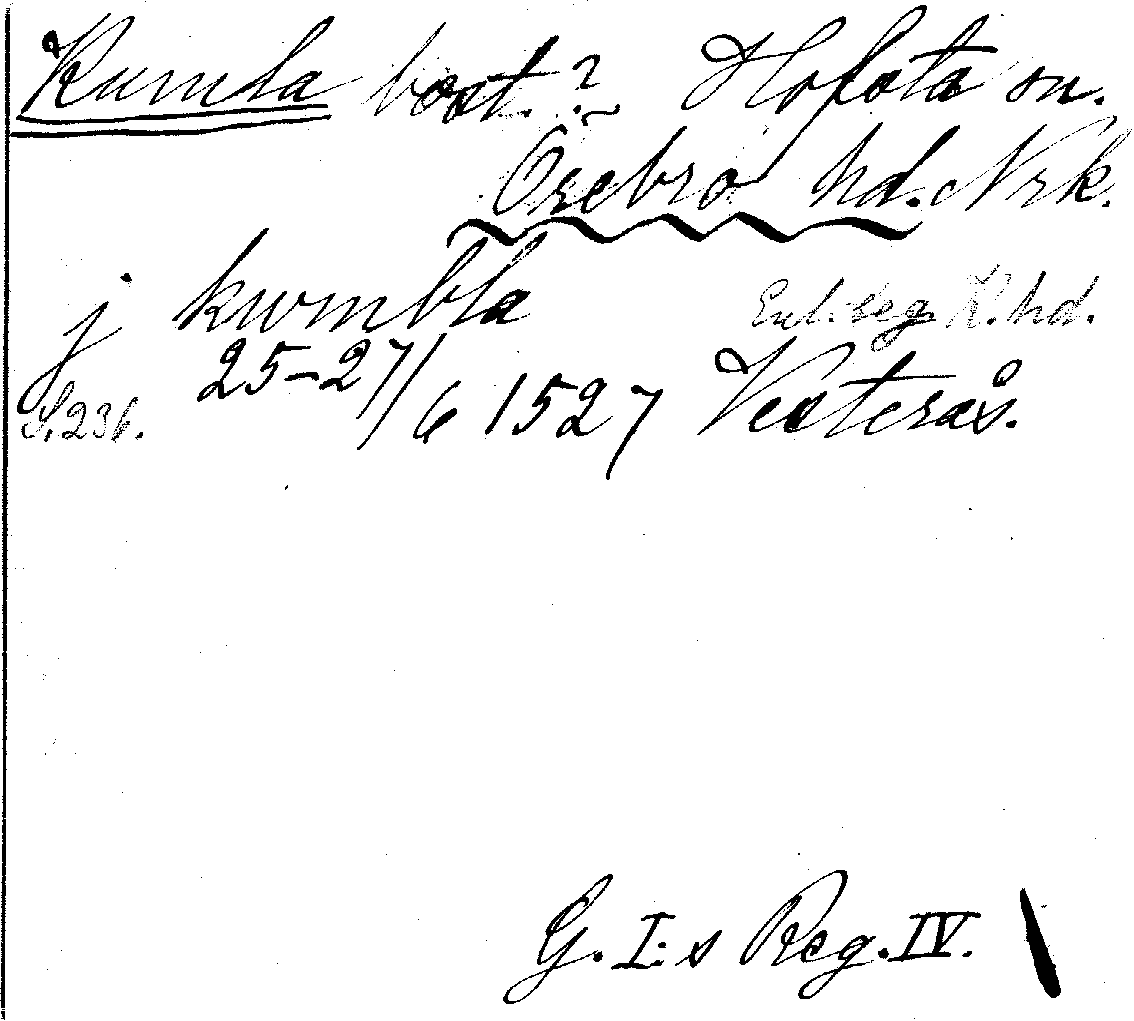 Kumla bost.? Hofsta sn.
Örebro hd. Nrk.
j kwmbla Enl. beg. K. hd.
S. 236. 25-27/6 1527 Vesterås.
G. I:s Reg. IV.